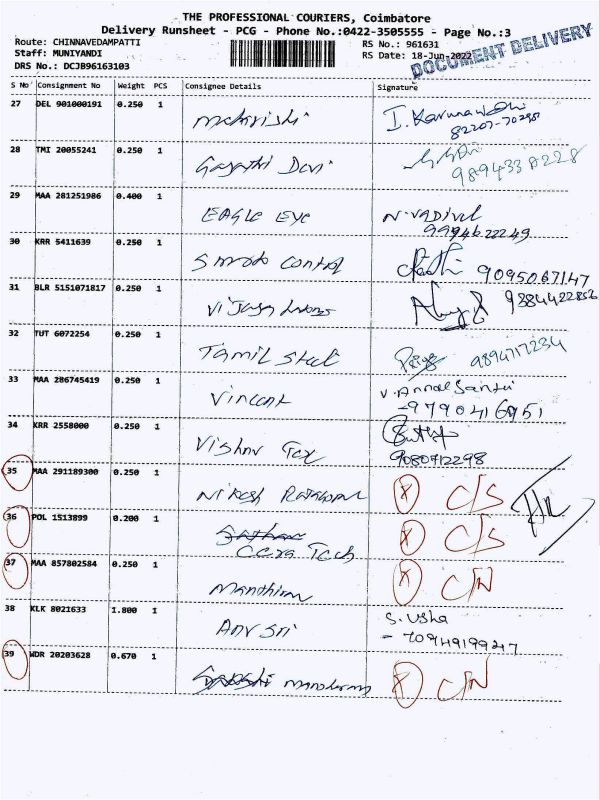 THE PROFESSIONAL COURIERS, Coimbatore
Delivery Runsheet - PCG - Phone No.:0422-3505555 - Page No.:3
Route: CHINNAVEDAMPATTI
Staff: MUNIYANDI
DRS No.: DCJB96163103
RS No.: 961631
RS Date: 18-Jun-2022
DOCUMENT DELIVERY
S No Consignment No Weight PCS Consignee Details Signature
27 DEL 901000191 0.250 1
I.
82207-70298
28 TMI 20055241 0.250 1 Gayathri Devi
29 MAA 281251986 0.400 1 EAGLE EYE N.VADIVEL
9994622249
30 KRR 5411639 0.250 1 Control
9095067147
31 BLR 5151071817 0.250 1 Vijaya
9384422856
32 TUT 6072254 0.250 1 TAMIL Steel Priya 9894717234
33 MAA 286745419 0.250 1 Vincent V.
34 KRR 2558000 0.250 1 Vishnu Tex
9080712298
35 MAA 291189300 0.250 1 X C/S
36 POL 1513899 0.200 1 Tech X C/S
37 MAA 857802584 0.250 1 X C/N
38 KLK 8021633 1.800 1 Anu Sri S. Usha
- 70949199247
39 WDR 20203628 0.670 1 X C/N